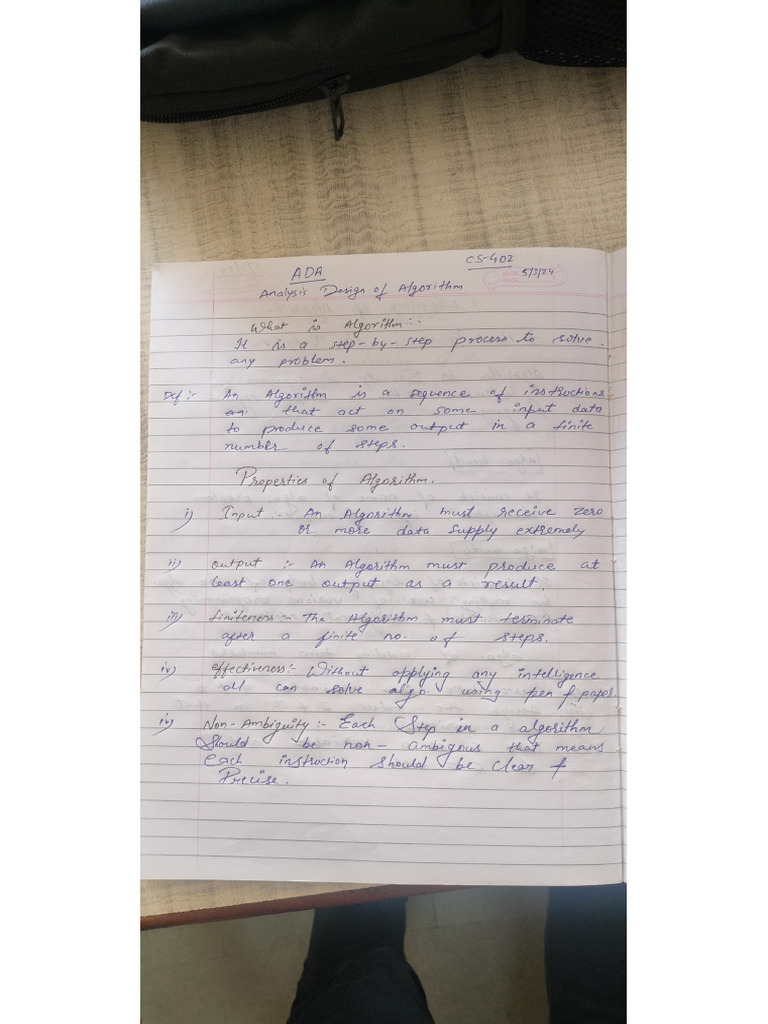 CS-402
ADA 5/3/24
Analysis Design of Algorithm
What is Algorithm:-
It is a step-by-step process to solve
any problem.
Def :- An Algorithm is a sequence of instructions
that act on some input data
to produce some output in a finite
number of steps.
Properties of Algorithm.
i) Input - An Algorithm must receive zero
or more data supply extremely
ii) output :- An Algorithm must produce at
least one output as a result.
iii) finiteness :- The Algorithm must terminate
after a finite no. of steps.
iv) effectiveness:- Without applying any intelligence
all can solve algo. using pen & paper
iv) Non-Ambiguity :- Each Step in a algorithm
Should be non- ambigous that means
each instruction should be clear &
Precise.